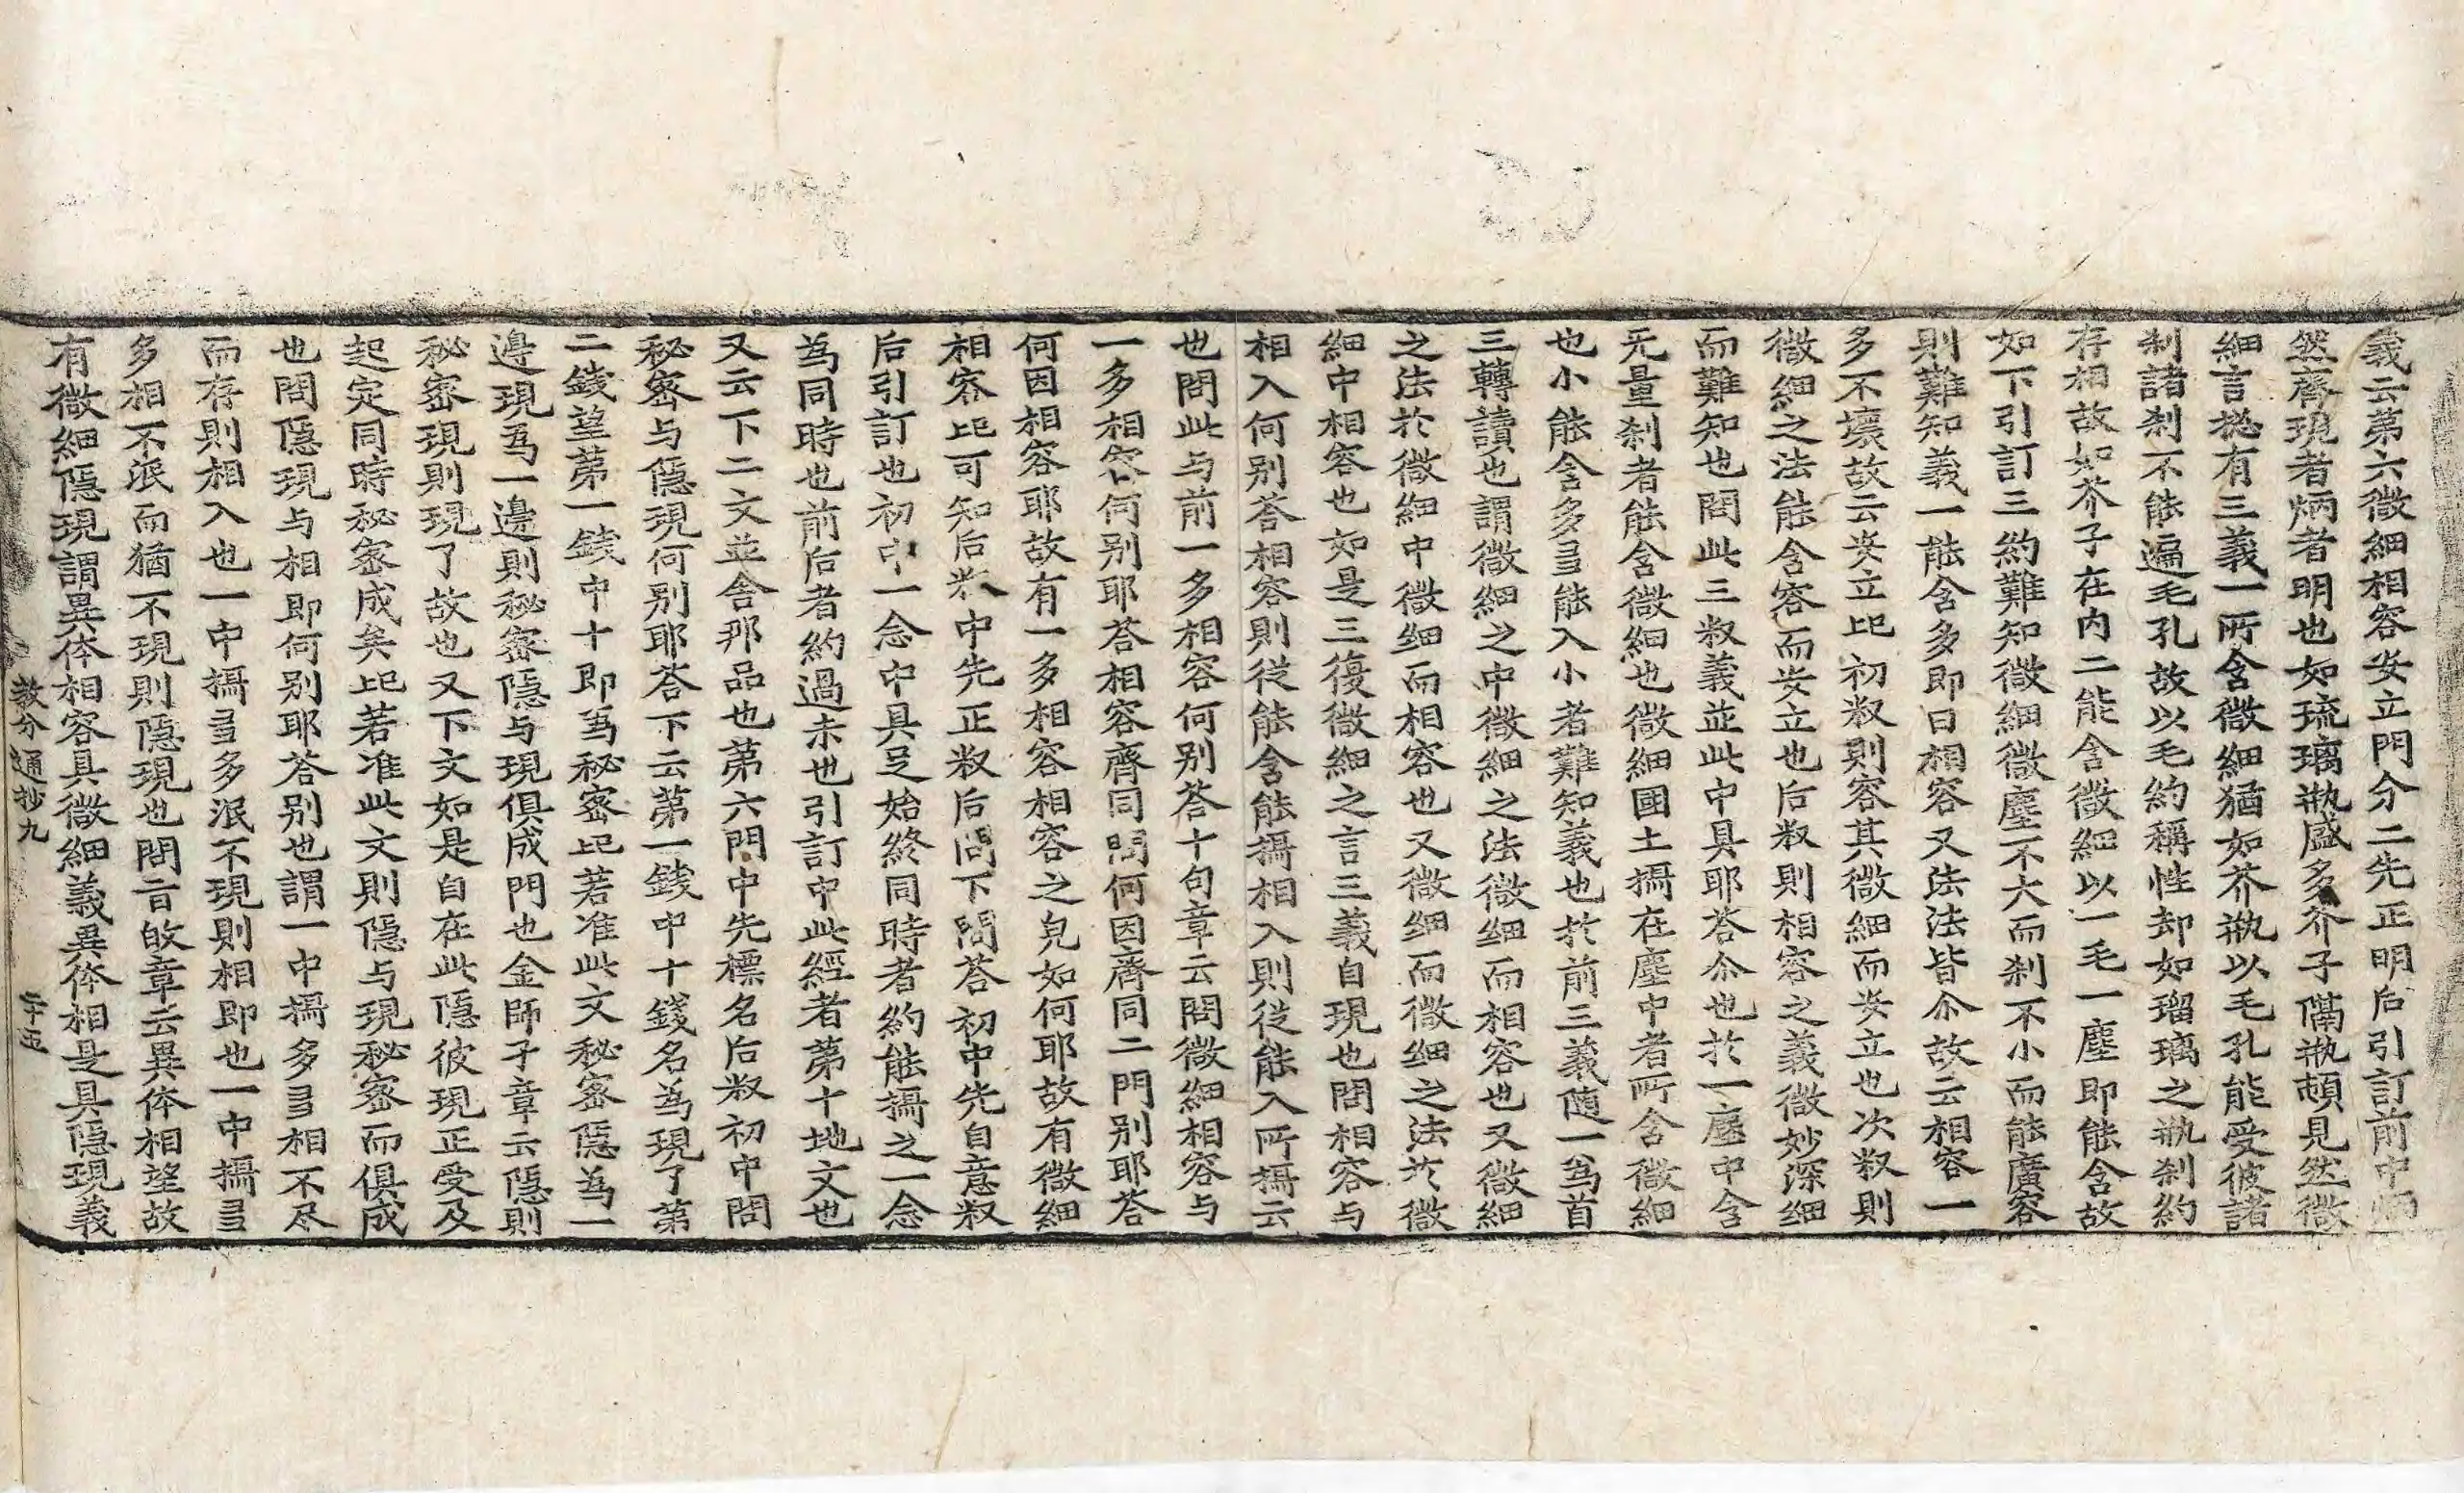 義云第六微細相容安立門分二先正明后引訂前中炳
然齊現者炳者明也如琉璃甁盛多芥子隔甁頓見然微
細言揔有三義一所含微細猶如芥甁以毛孔能受彼諸
刹諸刹不能遍毛孔故以毛約稱性却如瑠璃之甁刹約
存相故如芥子在內二能含微細以一毛一塵即能含故
如下引訂三約難知微細微塵不大而刹不小而能廣容
則難知義一能含多即曰相容又法法皆尒故云相容一
多不壞故云安立上初釈則容其微細而安立也次釈則
微細之法能含容而安立也后釈則相容之義微妙深細
而難知也問此三釈義並此中具耶荅尒也於一塵中含
无量刹者能含微細也微細國土攝在塵中者所含微細
也小能含多多能入小者難知義也於前三義随一爲首
三轉讀也謂微細之中微細之法微細而相容也又微細
之法於微細中微细而相容也又微细而微细之法於微
細中相容也如是三復微細之言三義自現也問相容与
相入何别荅相容則從能含能攝相入則從能入所攝云
也問此与前一多相容何别荅十句章云問微細相容与
一多相容何别耶荅相容齊同問何因齊同二門别耶荅
何因相容耶故有一多相容相容之皃如何耶故有微細
相容上可知后釈中先正釈后問下問荅初中先自意釈
后引訂也初中一念中具足始終同時者約能攝之一念
爲同時也前后者約過未也引訂中此經者第十地文也
又云下二文並舍那品也第六門中先標名后釈初中問
秘密与隱現何别耶荅下云第一錢中十錢名爲現了第
二錢望第一錢中十即爲秘密上若准此文秘密隱爲一
邊現爲一邊則秘密隱与現俱成門也金師子章云隱則
秘密現則現了故也又下文如是自在此隱彼現正受及
起定同時秘密成矣上若准此文則隱与現秘密而俱成
也問隱現与相即何别耶荅别也謂一中攝多多相不尽
而存則相入也一中攝多多泯不現則相即也一中攝多
多相不泯而猶不現則隱現也問旨故章云異体相望故
有微細隱現謂異体相容具微細義異体相是具隱現義
教分通抄九 二十五